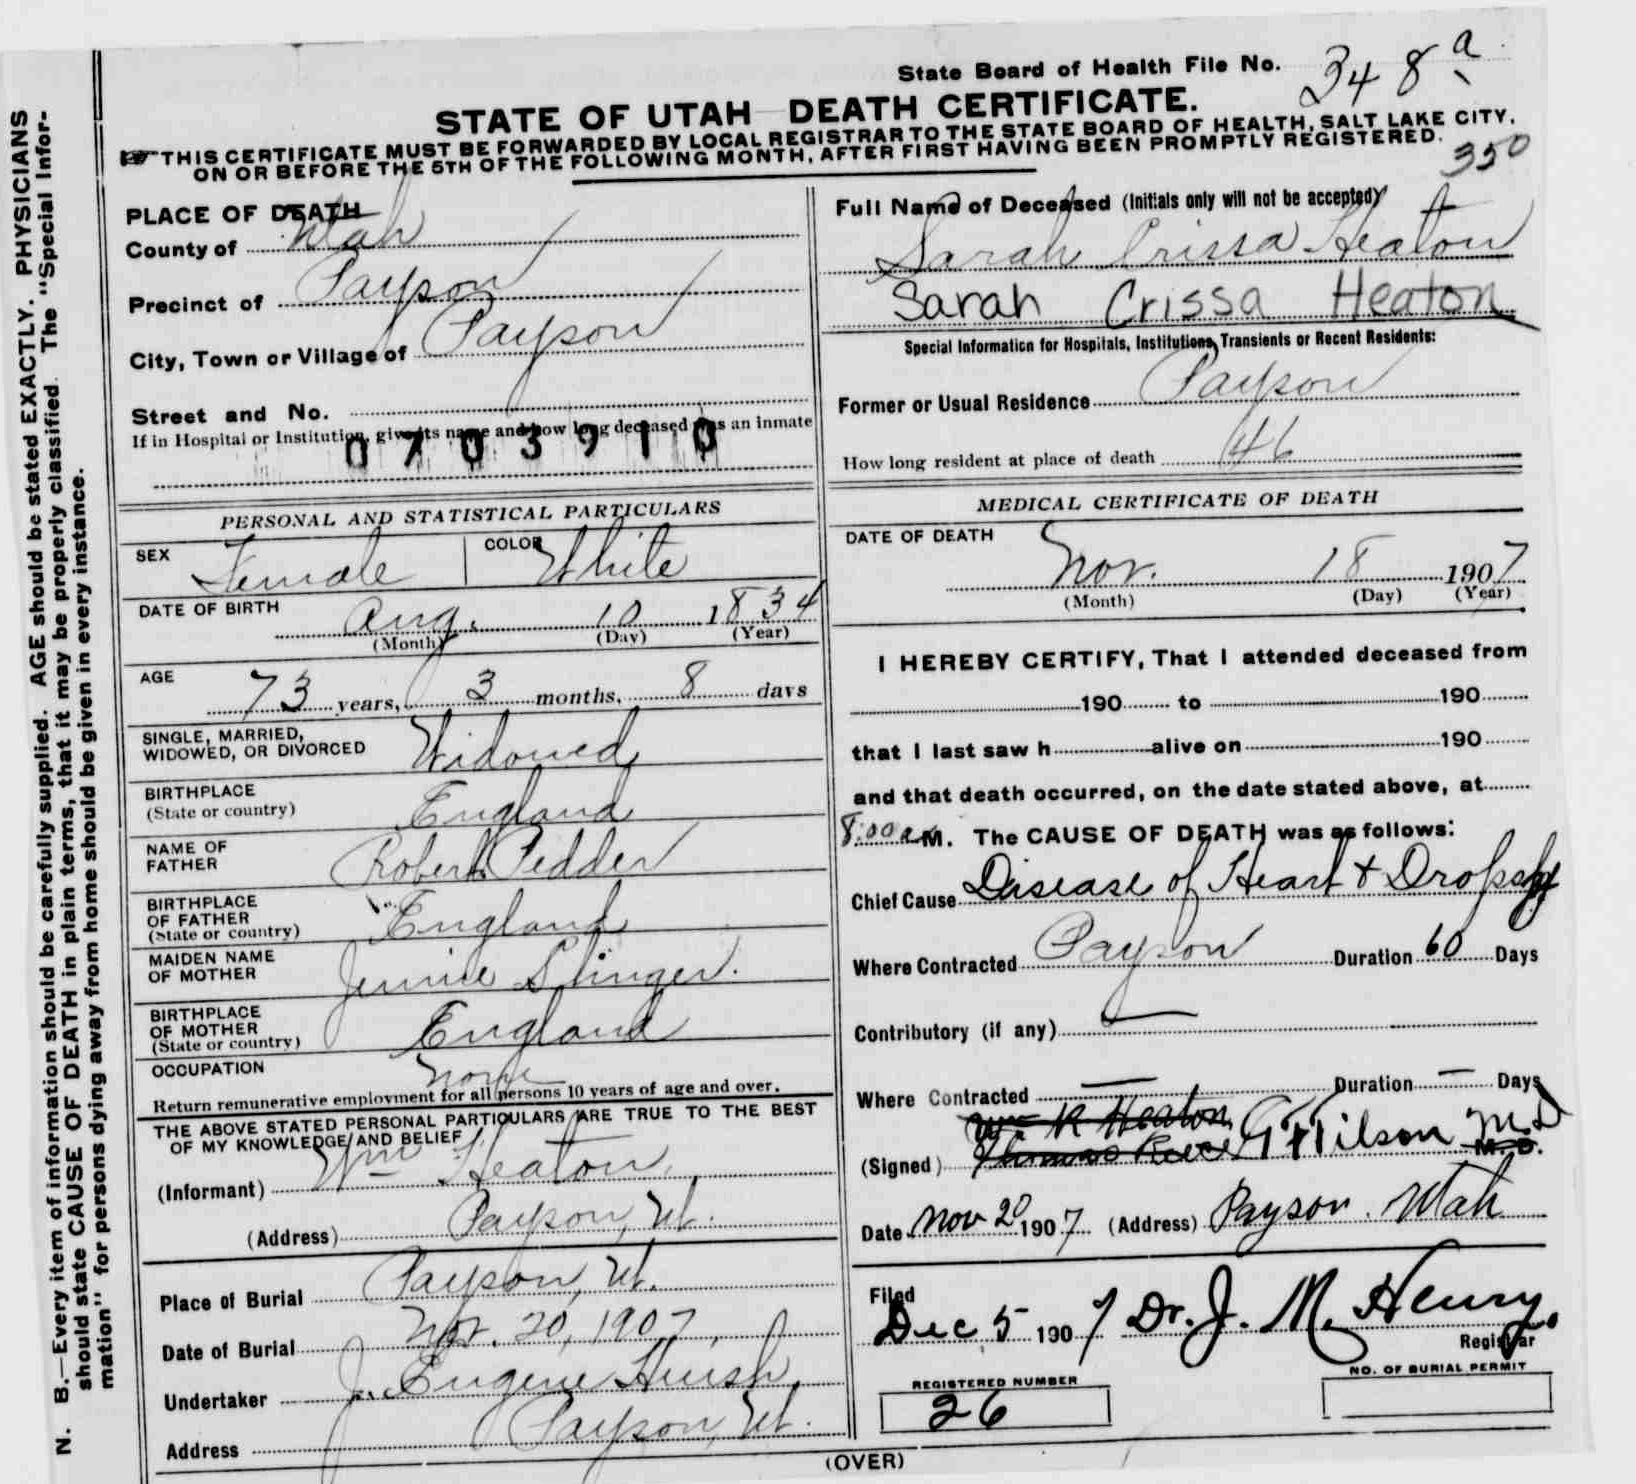 State Board of Health File No. 348a
STATE OF UTAH DEATH CERTIFICATE.
THIS CERTIFICATE MUST BE FORWARDED BY LOCAL REGISTRAR TO THE STATE BOARD OF HEALTH, SALT LAKE CITY,
ON OR BEFORE THE 5TH OF THE FOLLOWING MONTH, AFTER FIRST HAVING BEEN PROMPTLY REGISTERED.
350
PLACE OF DEATH
County of Utah
Precinct of Payson
City, Town or Village of Payson
Street and No.
If in Hospital or Institution, give its name and how long deceased was an inmate
0703910
PERSONAL AND STATISTICAL PARTICULARS
SEX Female COLOR White
DATE OF BIRTH Aug. 10 1834
(Month) (Day) (Year)
AGE 73 years, 3 months, 8 days
SINGLE, MARRIED,
WIDOWED, OR DIVORCED Widowed
BIRTHPLACE
(State or country) England
NAME OF
FATHER Robert Pedder
BIRTHPLACE
OF FATHER
(State or country) England
MAIDEN NAME
OF MOTHER Jennie Slinger.
BIRTHPLACE
OF MOTHER
(State or country) England
OCCUPATION None
Return remunerative employment for all persons 10 years of age and over.
THE ABOVE STATED PERSONAL PARTICULARS ARE TRUE TO THE BEST
OF MY KNOWLEDGE AND BELIEF
(Informant) Wm Heaton
(Address) Payson, Ut.
Place of Burial Payson, Ut.
Date of Burial Nov. 20, 1907.
Undertaker J. Eugene Huish,
Address Payson, Ut.
Full Name of Deceased (Initials only will not be accepted)
Sarah Crissa Heaton
Sarah Crissa Heaton
Special Information for Hospitals, Institutions, Transients or Recent Residents:
Former or Usual Residence Payson
How long resident at place of death 46
MEDICAL CERTIFICATE OF DEATH
DATE OF DEATH
Nov. 18 1907
(Month) (Day) (Year)
I HEREBY CERTIFY, That I attended deceased from
190 to 190
that I last saw h alive on 190
and that death occurred, on the date stated above, at
8:00 a M. The CAUSE OF DEATH was as follows:
Chief Cause Disease of Heart & Dropsy
Where Contracted Payson Duration 60 Days
Contributory (if any) —
Where Contracted — Duration — Days
Wm R Heaton
(Signed) Thomas Reece Wilson M.D M.D.
Date Nov 20 1907 (Address) Payson. Utah
Filed
Dec 5 1907 Dr. J. M. Henry.
Registrar
REGISTERED NUMBER
26
NO. OF BURIAL PERMIT
(OVER)
N. B.—Every item of information should be carefully supplied. AGE should be stated EXACTLY. PHYSICIANS
should state CAUSE OF DEATH in plain terms, that it may be properly classified. The "Special Infor-
mation" for persons dying away from home should be given in every instance.